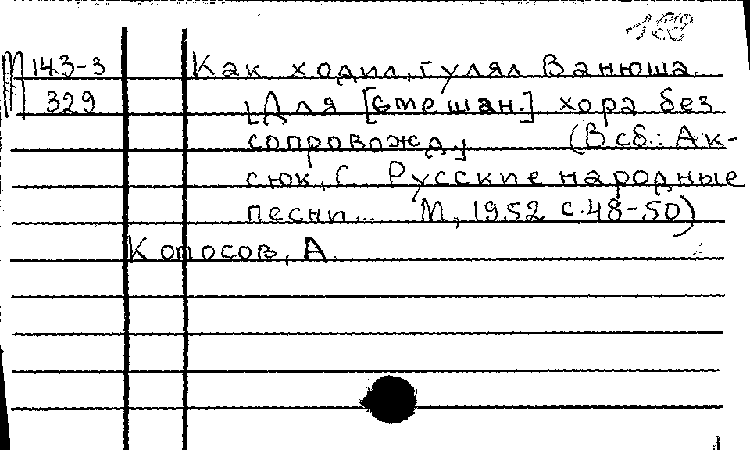 188
М 143-3 Как ходил, гулял Ванюша
329 [Для [смешан.] хора без
сопровожд] (В сб.: Ак-
сюк, С. Русские народные
песни... М, 1952 с. 48-50)
Копосов, А.